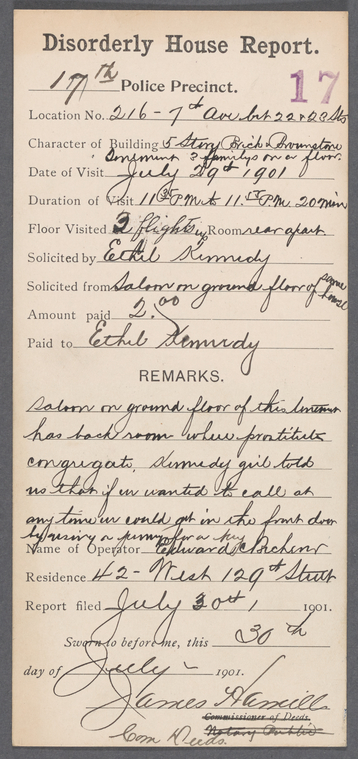 Disorderly House Report.
17th Police Precinct.
17
Location No. 216 - 7th Ave bet 22 & 23 Sts
Character of Building 5 Story Brick & Brownstone
Tenement 3 familys on a floor.
Date of Visit July 29th 1901
Duration of Visit 11 P.M. to 11. P.M. 20 min
Floor Visited 2 flights up Room rear apart.
Solicited by Ethel Kennedy
Solicited from Saloon on ground floor of same house
Amount paid 2.00
Paid to Ethel Kennedy
REMARKS.
Saloon on ground floor of this tenement
has back room where prostitutes
congregate. Kennedy girl told
us that if we wanted to call at
any time we could get in the front door
by using a penny for a key
Name of Operator Edward
Residence 42 - West 129th Street
Report filed July 30th 1901.
Sworn to before me, this 30th
day of July - 1901.
James Hamill
Commissioner of Deeds.
Notary Public
Com Deeds.